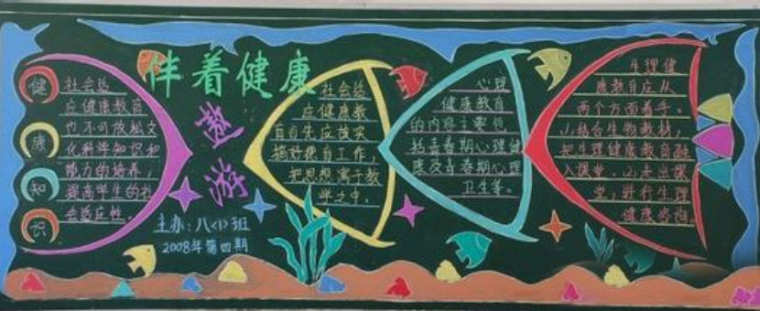 伴着健康
遨游
主办:八<1>班
2008年第四期
健
康
知
识
社会适
应健康教育
也不可放松文
化科学知识和
能力的培养,
提高学生的社
会适应性。
社会适
应健康教
育首先应放实
搞好德育工作,
把思想寓于教
学之中。
心理
健康教育
的内容主要包
括青春期心理健
康及青春期心理
卫生等。
生理健
康教育应从
两个方面着手。
(1)结合生物教材,
把生理健康教育融
入课堂。(2)走出课
堂,进行生理
健康咨询